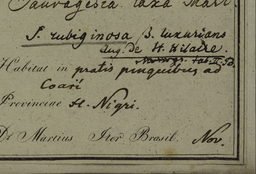 Sauvagesia laxa Mart.
S. rubiginosa β. luxurians
Aug. de St. Hilaire.
tab. II. 
Habitat in pratis pinguibus ad
Coari
Provinciae R. Nigri.
Dr Martius Iter Brasil. Nov.